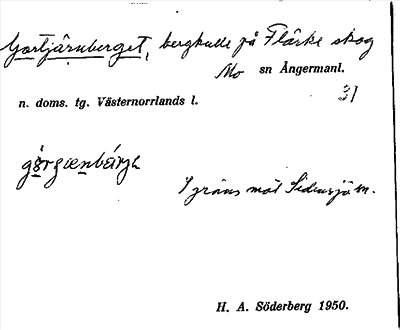 Gortjärnberget, bergkulle på Flärke skog
Mo sn Ångermanl.
n. doms. tg. Västernorrlands l. 31
I gräns mot Sidensjö sn.
H. A. Söderberg 1950.